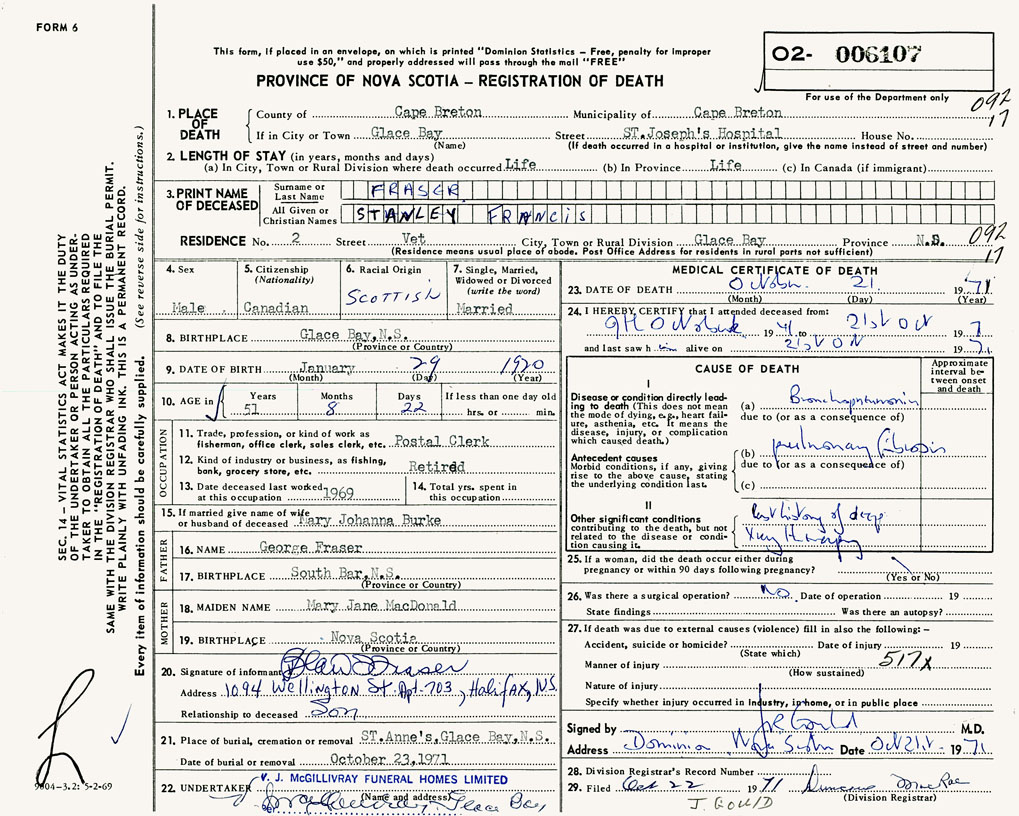 FORM 6
This form, if placed in an envelope, on which is printed "Dominion Statistics – Free, penalty for improper
use $50," and properly addressed will pass through the mail "FREE"
PROVINCE OF NOVA SCOTIA – REGISTRATION OF DEATH
02- 006107
For use of the Department only
092
17
1. PLACE OF DEATH
County of Cape Breton Municipality of Cape Breton
If in City or Town Glace Bay Street ST.Joseph's Hospital House No.
(Name) (If death occurred in a hospital or institution, give the name instead of street and number)
2. LENGTH OF STAY (in years, months and days)
(a) In City, Town or Rural Division where death occurred Life (b) In Province Life (c) In Canada (if immigrant)
3. PRINT NAME OF DECEASED
Surname or Last Name FRASER
All Given or Christian Names STANLEY FRANCIS
RESIDENCE No. 2 Street Vet City, Town or Rural Division Glace Bay Province N.S. 092
17
(Residence means usual place of abode. Post Office Address for residents in rural parts not sufficient)
4. Sex
Male
5. Citizenship
(Nationality)
Canadian
6. Racial Origin
SCOTTISH
7. Single, Married,
Widowed or Divorced
(write the word)
Married
8. BIRTHPLACE Glace Bay,N.S.
(Province or Country)
9. DATE OF BIRTH January 29 1920
(Month) (Day) (Year)
10. AGE in
Years Months Days If less than one day old
51 8 22 hrs. or min.
OCCUPATION
11. Trade, profession, or kind of work as
fisherman, office clerk, sales clerk, etc. Postal Clerk
12. Kind of industry or business, as fishing,
bank, grocery store, etc. Retired
13. Date deceased last worked
at this occupation 1969
14. Total yrs. spent in
this occupation
15. If married give name of wife
or husband of deceased Mary Johanna Burke
FATHER
16. NAME George Fraser
17. BIRTHPLACE South Bar,N.S.
(Province or Country)
MOTHER
18. MAIDEN NAME Mary Jane MacDonald
19. BIRTHPLACE Nova Scotia
(Province or Country)
20. Signature of informant Fraser
Address 1094 Wellington St. Apt-703, Halifax, N.S.
Relationship to deceased Son
21. Place of burial, cremation or removal ST.Anne's,Glace Bay,N.S.
Date of burial or removal October 23,1971
V. J. McGILLIVRAY FUNERAL HOMES LIMITED
22. UNDERTAKER Glace Bay
(Name and address)
MEDICAL CERTIFICATE OF DEATH
23. DATE OF DEATH October 21 1971
(Month) (Day) (Year)
24. I HEREBY CERTIFY that I attended deceased from:
9th October 1971 to 21st Oct 197
and last saw him alive on 21st Oct 1971
CAUSE OF DEATH
Approximate
interval be-
tween onset
and death
I
Disease or condition directly lead-
ing to death (This does not mean
the mode of dying, e.g., heart fail-
ure, asthenia, etc. It means the
disease, injury, or complication
which caused death.)
(a) Bronchopneumonia
due to (or as a consequence of)
Antecedent causes
Morbid conditions, if any, giving
rise to the above cause, stating
the underlying condition last.
(b) pulmonary fibrosis
due to (or as a consequence of)
(c)
II
Other significant conditions
contributing to the death, but not
related to the disease or condi-
tion causing it.
history of deep
Xray therapy
25. If a woman, did the death occur either during
pregnancy or within 90 days following pregnancy?
(Yes or No)
26. Was there a surgical operation? No. Date of operation 19
State findings Was there an autopsy?
27. If death was due to external causes (violence) fill in also the following: –
Accident, suicide or homicide? Date of injury 19
(State which)
Manner of injury 517X
(How sustained)
Nature of injury
Specify whether injury occurred in Industry, in home, or in public place
Signed by Gould M.D.
Address Dominion Nova Scotia Date Oct 21st 1971
28. Division Registrar's Record Number
29. Filed Oct 22 1971 Duncan MacRae
(Division Registrar)
J. GOULD
SEC. 14 – VITAL STATISTICS ACT MAKES IT THE DUTY
OF THE UNDERTAKER OR PERSON ACTING AS UNDER-
TAKER TO OBTAIN ALL THE PARTICULARS REQUIRED
IN THE "REGISTRATION OF DEATH" AND TO FILE THE
SAME WITH THE DIVISION REGISTRAR WHO SHALL ISSUE THE BURIAL PERMIT.
WRITE PLAINLY WITH UNFADING INK. THIS IS A PERMANENT RECORD.
Every item of information should be carefully supplied. (See reverse side for instructions.)
9004-3.2: 5-2-69